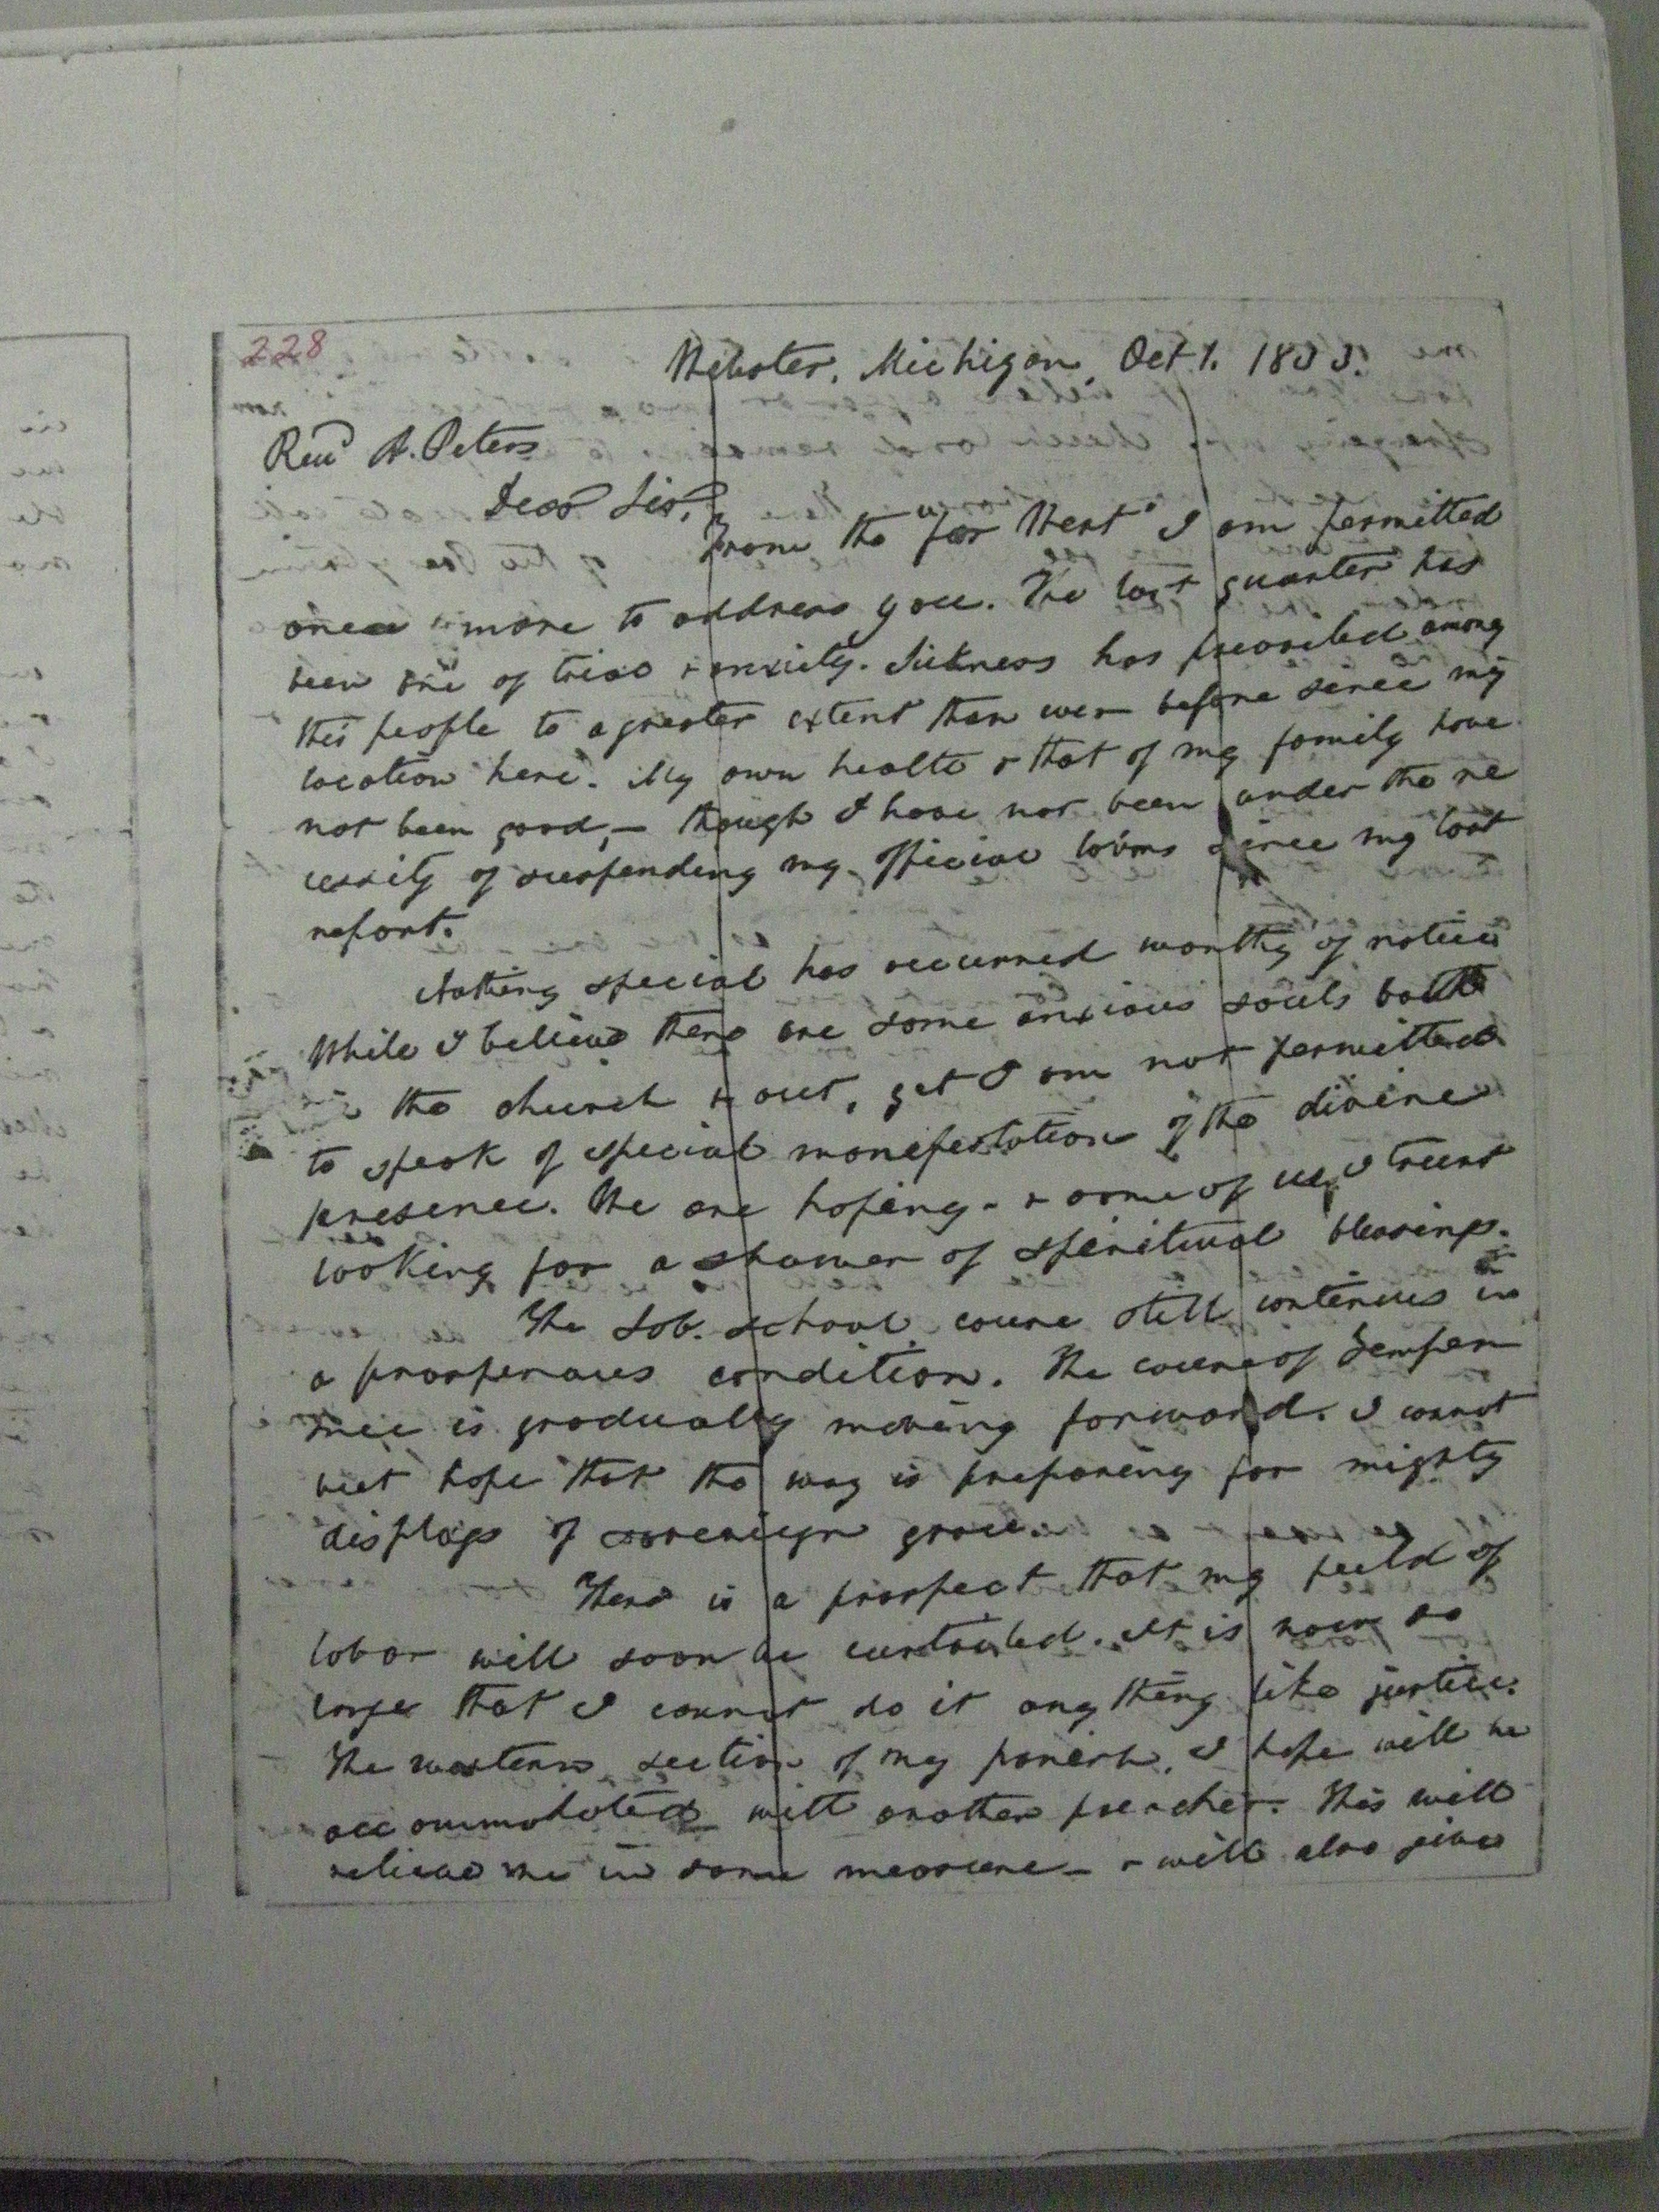 228
Webster, Michigan, Oct 1. 1833.
Revd A. Peters
Dear Sir,
From the "far West" I am permitted
once more to address you. The last quarter has
been one of trial & anxiety. Sickness has prevailed among
this people to a greater extent than ever before since my
location here. My own health & that of my family have
not been good, – though I have not been under the ne
cessity of suspending my official labors since my last
report.
Nothing special has occurred worthy of notice
While I believe there are some anxious souls both
in the church & out, yet I am not permitted
to speak of special manifestations of the divine
presence. We are hoping - & some of us, I trust
looking for a shower of spiritual blessings.
The Sab. school cause still continues in
a prosperous condition. The cause of Temper
ance is gradually moving forward. I cannot
but hope that the way is preparing for mighty
displays of sovereign grace.
There is a prospect that my field of
labor will soon be curtailed. It is now so
large that I cannot do it any thing like justice.
The western section of my parish, I hope will be
accommodated with another preacher. This will
relieve me in some measure – & will also give